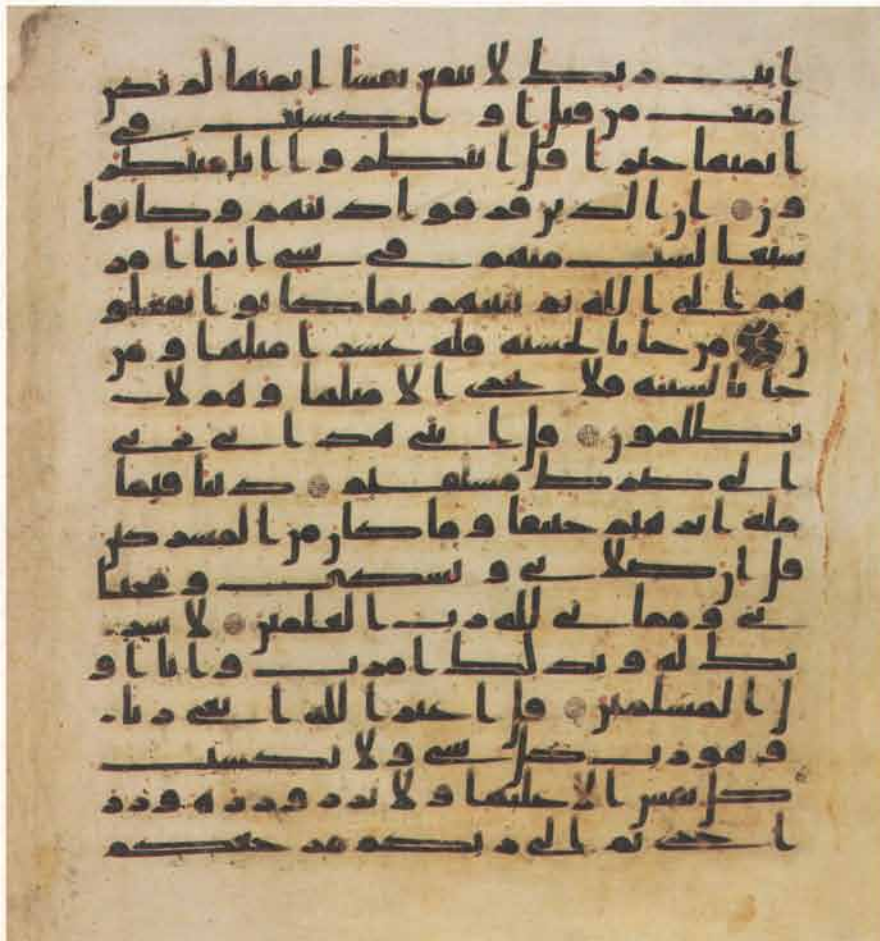 ايت ربك لا ينفع نفسا ايمنها لم تكن
امنت من قبل او كسبت في
ايمنها خيرا قل انتظروا انا منتظر
ون ان الذين فرقوا دينهم وكانوا
شيعا لست منهم في شي انما امر
هم الى الله ثم ينبئهم بما كانوا يفعلو
ن من جا بالحسنة فله عشر امثلها ومن
جا بالسيئة فلا يجزى الا مثلها وهم لا
يظلمون قل انني هدىني ربي
الى صرط مستقيم دينا قيما
ملة ابرهيم حنيفا وما كان من المشركين
قل ان صلاتي ونسكي ومحيا
ي ومماتي لله رب العلمين لا شر
يك له وبذلك امرت وانا او
ل المسلمين قل اغير الله ابغي ربا
وهو رب كل شي ولا تكسب
كل نفس الا عليها ولا تزر وزرة وزر
اخرى ثم الى ربكم مرجعكم